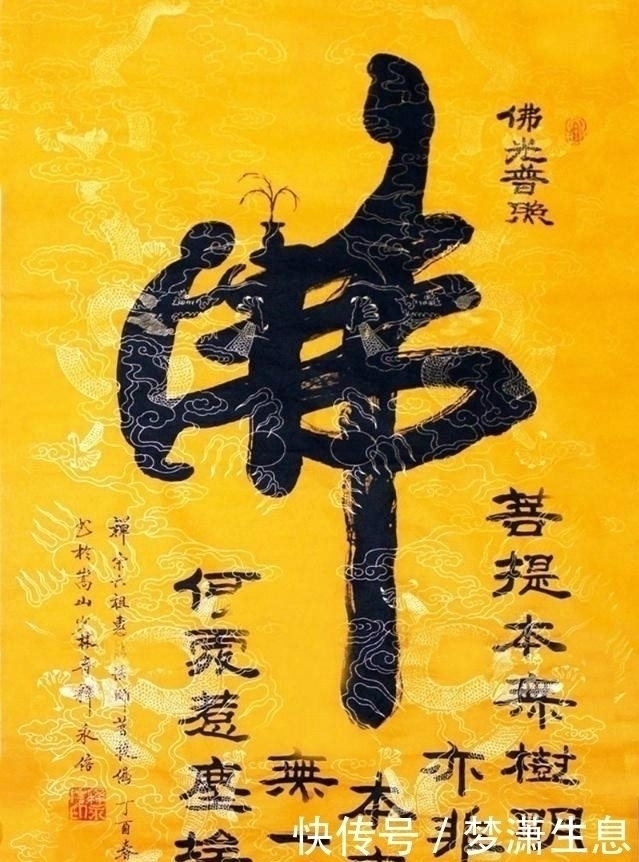 佛光普照
佛
菩提本無樹明
亦非
本
無一
何處惹塵埃
禪宗六祖惠能禪師菩提偈 丁酉春
書於嵩山少林寺釋永信
快传号 / 梦潇生息